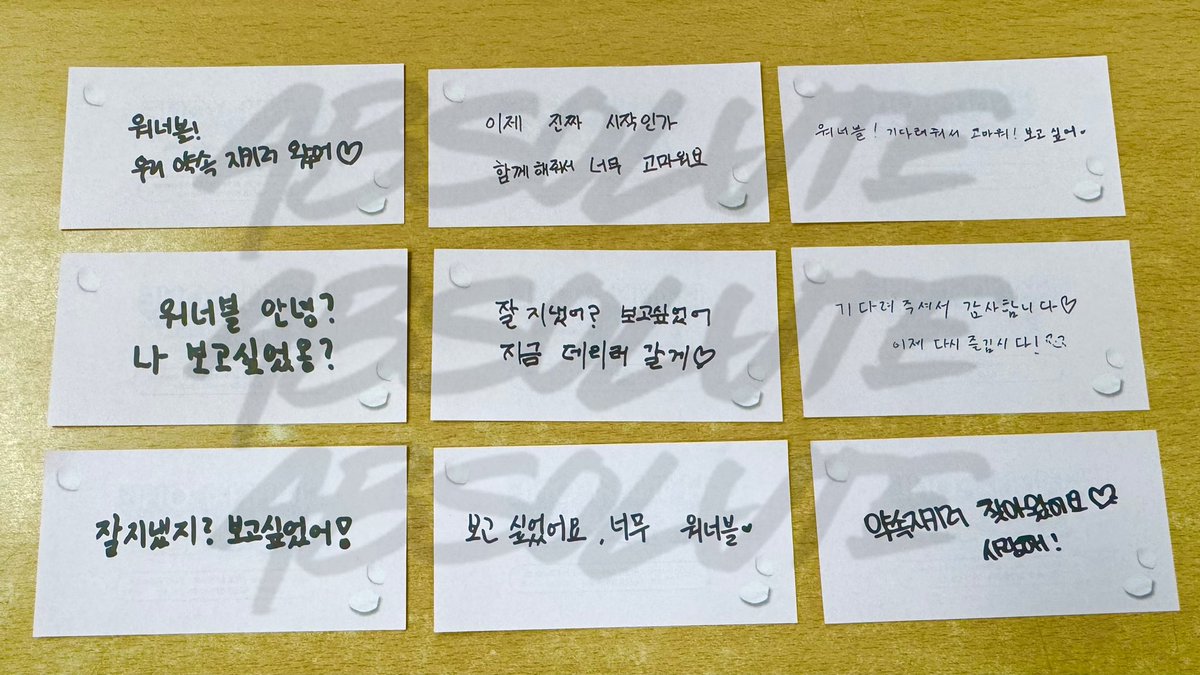 워너블!
우리 약속 지키러 왔어♡
이제 진짜 시작인가
함께해줘서 너무 고마워요
워너블! 기다려줘서 고마워! 보고싶어♥
워너블 안녕?
나 보고싶었옹?
잘 지냈어? 보고싶었어
지금 데리러 갈게♡
기다려주셔서 감사합니다♡
이제 다시 즐깁시다!
잘지냈지? 보고싶었어!
보고 싶었어요, 너무 워너블♥
약속지키러 찾아왔어요♡
사랑해!
ABSOLUTE
ABSOLUTE
ABSOLUTE